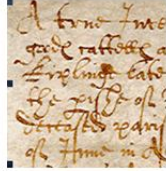 A true Inve
goods cattells a
Kiplinge late
the pishe of
deceased pari
of June in a